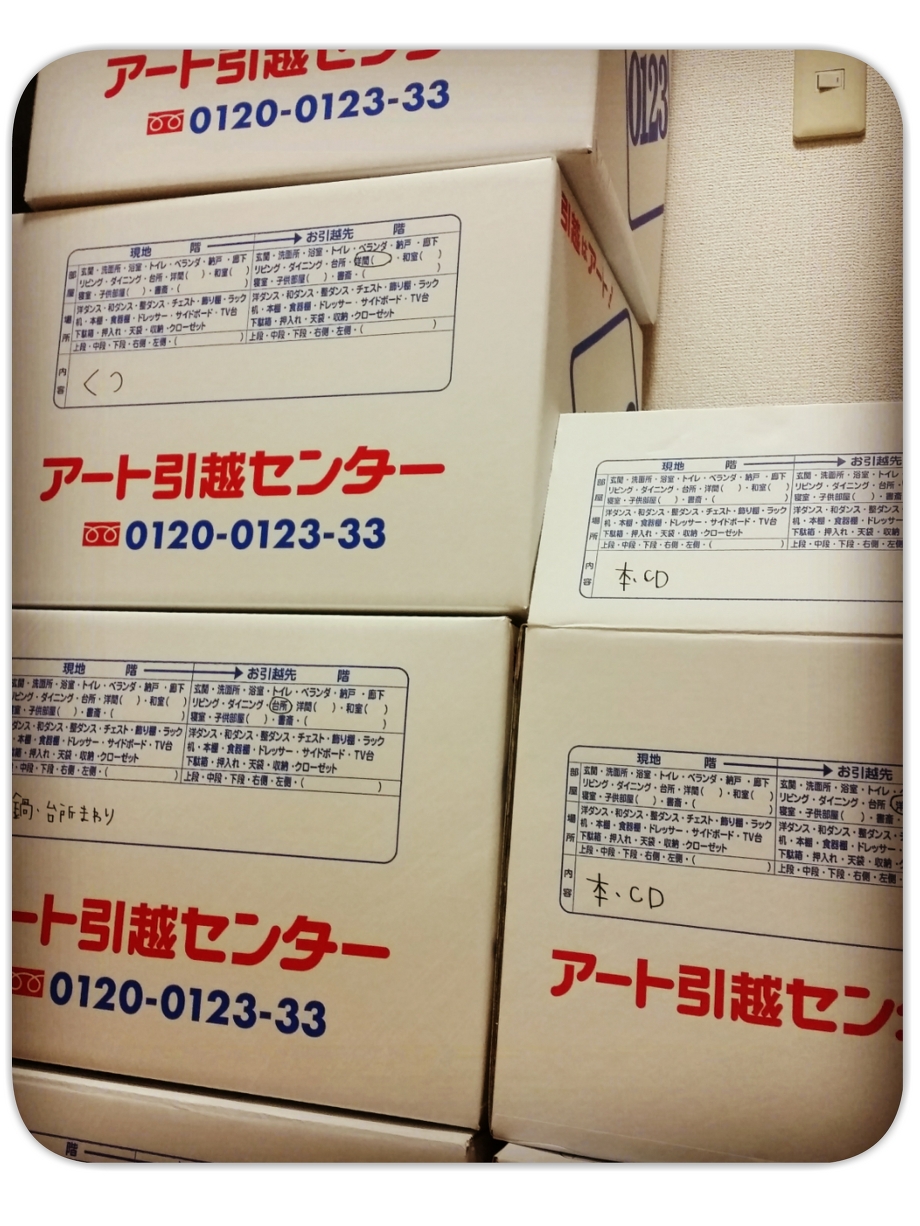 アート引越センター
0120-0123-33
0123
現地 階 お引越先 階
部屋 玄関・洗面所・浴室・トイレ・ベランダ・納戸・廊下 玄関・洗面所・浴室・トイレ・ベランダ・納戸・廊下
リビング・ダイニング・台所・洋間( )・和室( ) リビング・ダイニング・台所・洋間( )・和室( )
寝室・子供部屋( )・書斎・( ) 寝室・子供部屋( )・書斎・( )
場所 洋ダンス・和ダンス・整ダンス・チェスト・飾り棚・ラック 洋ダンス・和ダンス・整ダンス・チェスト・飾り棚・ラック
机・本棚・食器棚・ドレッサー・サイドボード・TV台 机・本棚・食器棚・ドレッサー・サイドボード・TV台
下駄箱・押入れ・天袋・収納・クローゼット 下駄箱・押入れ・天袋・収納・クローゼット
上段・中段・下段・右側・左側・( ) 上段・中段・下段・右側・左側・( )
内容 くつ
アート引越センター
0120-0123-33
引越はアート!
現地 階 お引越先
部屋 玄関・洗面所・浴室・トイレ・ベランダ・納戸・廊下 玄関・洗面所・浴室・トイレ・
リビング・ダイニング・台所・洋間( )・和室( ) リビング・ダイニング・台所・
寝室・子供部屋( )・書斎・( ) 寝室・子供部屋( )・書斎
場所 洋ダンス・和ダンス・整ダンス・チェスト・飾り棚・ラック 洋ダンス・和ダンス・整ダンス・
机・本棚・食器棚・ドレッサー・サイドボード・TV台 机・本棚・食器棚・ドレッサー
下駄箱・押入れ・天袋・収納・クローゼット 下駄箱・押入れ・天袋・収納
上段・中段・下段・右側・左側・( ) 上段・中段・下段・右側・左側
内容 本、CD
現地 階 お引越先 階
玄関・洗面所・浴室・トイレ・ベランダ・納戸・廊下 玄関・洗面所・浴室・トイレ・ベランダ・納戸・廊下
リビング・ダイニング・台所・洋間( )・和室( ) リビング・ダイニング・台所・洋間( )・和室( )
寝室・子供部屋( )・書斎・( ) 寝室・子供部屋( )・書斎・( )
ダンス・和ダンス・整ダンス・チェスト・飾り棚・ラック 洋ダンス・和ダンス・整ダンス・チェスト・飾り棚・ラック
本棚・食器棚・ドレッサー・サイドボード・TV台 机・本棚・食器棚・ドレッサー・サイドボード・TV台
押入れ・天袋・収納・クローゼット 下駄箱・押入れ・天袋・収納・クローゼット
中段・下段・右側・左側・( ) 上段・中段・下段・右側・左側・( )
鍋・台所まわり
ート引越センター
0120-0123-33
現地 階 お引越先
部屋 玄関・洗面所・浴室・トイレ・ベランダ・納戸・廊下 玄関・洗面所・浴室・トイレ・
リビング・ダイニング・台所・洋間( )・和室( ) リビング・ダイニング・台所
寝室・子供部屋( )・書斎・( ) 寝室・子供部屋( )・書斎
場所 洋ダンス・和ダンス・整ダンス・チェスト・飾り棚・ラック 洋ダンス・和ダンス・整ダンス・
机・本棚・食器棚・ドレッサー・サイドボード・TV台 机・本棚・食器棚・ドレッサー
下駄箱・押入れ・天袋・収納・クローゼット 下駄箱・押入れ・天袋・収納
上段・中段・下段・右側・左側・( ) 上段・中段・下段・右側・左側
内容 本、CD
アート引越セン
階